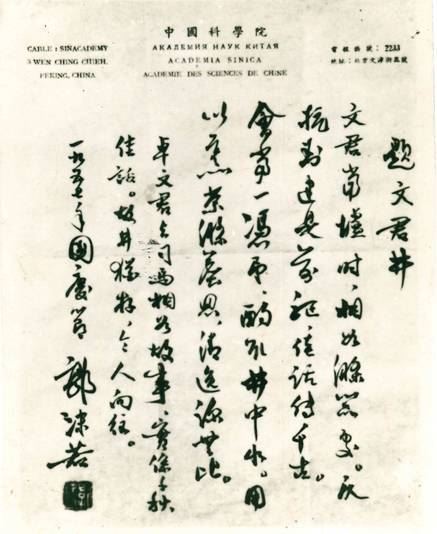 CABLE : SINACADEMY
3 WEN CHING CHIEH,
PEKING, CHINA
中國科學院
АКАДЕМИЯ НАУК КИТАЯ
ACADEMIA SINICA
ACADEMIE DES SCIENCES DE CHINE
電報掛號：2233
地址：北京文津街三號
題文君井
文君當壚時、相如滌器處。反
抗封建是前驅、佳話傳千古。
會當一憑弔、酌取井中水。用
以烹茶滌塵思、清逸涼無比。
卓文君与司馬相如故事、實係千秋
佳話。故井猶存、令人向往。
一九五七年國慶節
郭沫若